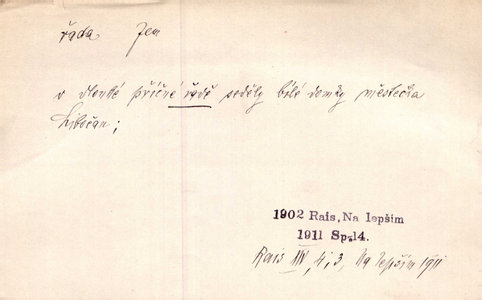 řada    Jen
v dlouhé příčné řadě seděly bílé domky městečka
Libočan;
1902 Rais, Na lepším
1911 Sp.14.
Rais XIV, 4, 3, Na lepším 1911